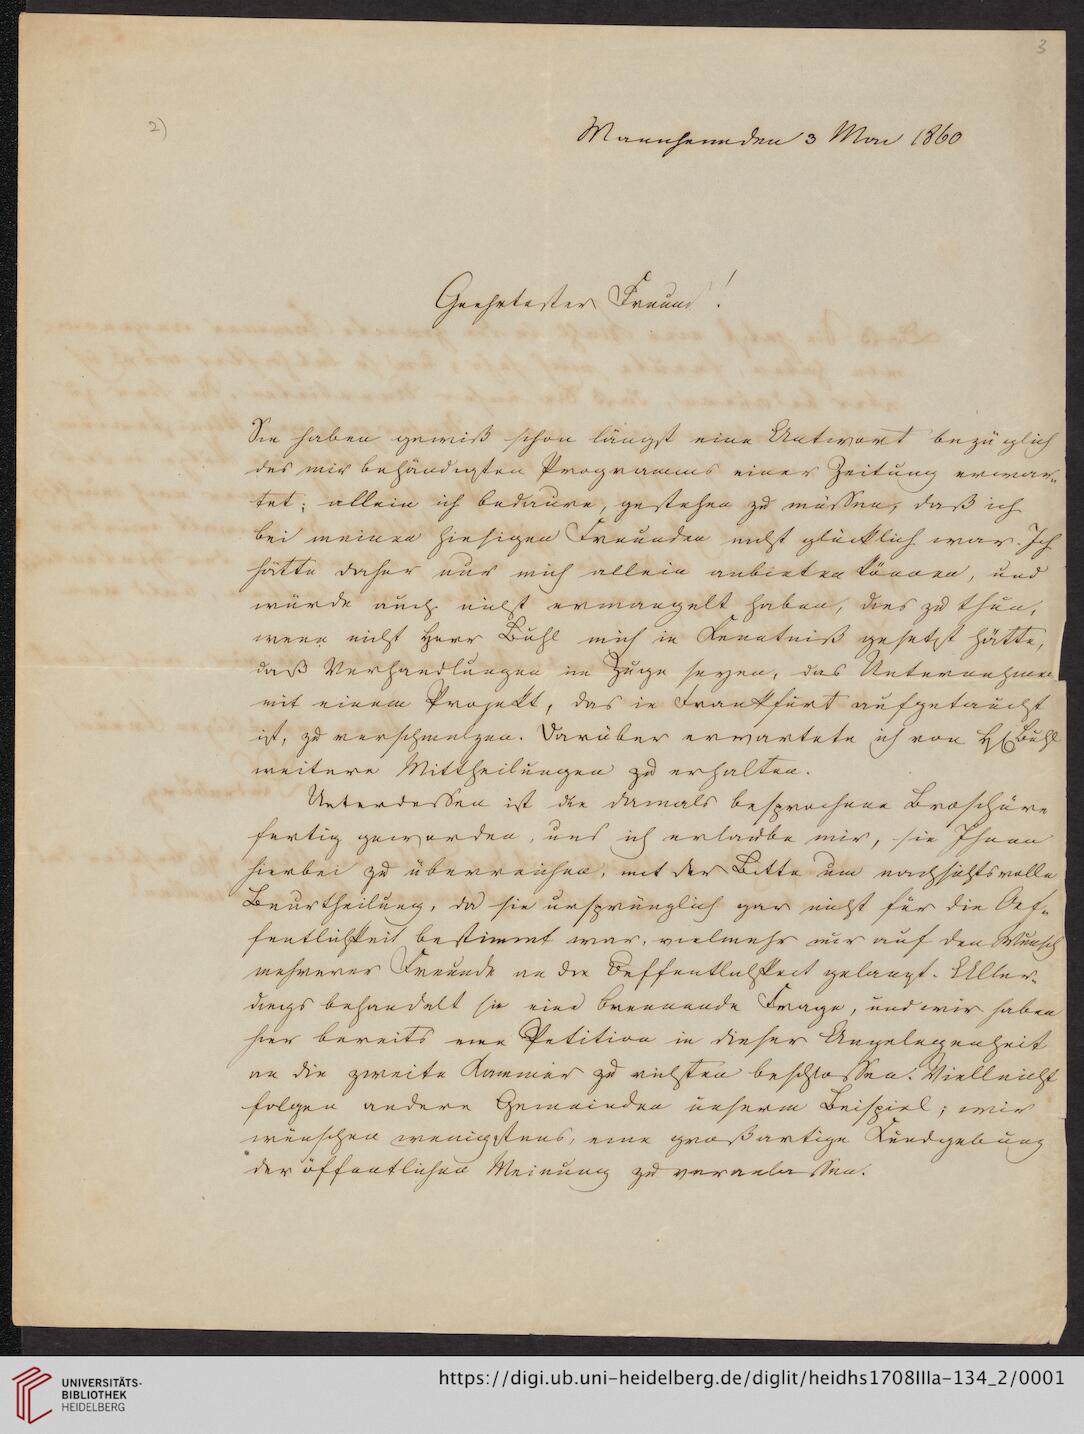 3
2)
Mannheim den 3 Mai 1860
Geehrtester Freund!
Sie haben gewiß schon längst eine Antwort bezüglich
des mir behändigten Programms einer Zeitung erwar-
tet; allein ich bedaure, gestehen zu müssen, daß ich
bei meinen hiesigen Freunden nicht glücklich war. Ich
hätte daher nur mich allein anbieten können, und
würde auch nicht ermangelt haben, dies zu thun,
wenn nicht Herr Buhl mich in Kenntniß gesetzt hätte,
daß Verhandlungen im Zuge seyen, das Unternehmen
mit einem Projekt, das in Frankfurt aufgetaucht
ist, zu verschmelzen. Darüber erwartete ich von H. Buhl
weitere Mittheilungen zu erhalten.
Unterdessen ist die damals besprochene Broschüre
fertig geworden, und ich erlaube mir, sie Ihnen
hierbei zu überreichen, mit der Bitte um nachsichtsvolle
Beurtheilung, da sie ursprünglich gar nicht für die Oef-
fentlichkeit bestimmt war, vielmehr nur auf den Wunsch
mehrerer Freunde an die Oeffentlichkeit gelangt. Aller-
dings behandelt sie eine brennende Frage, und wir haben
hier bereits eine Petition in dieser Angelegenheit
an die zweite Kammer zu richten beschlossen. Vielleicht
folgen andere Gemeinden unserm Beispiel; wir
wünschen wenigstens, eine großartige Kundgebung
der öffentlichen Meinung zu veranlassen.
UNIVERSITÄTS-
BIBLIOTHEK
HEIDELBERG
https://digi.ub.uni-heidelberg.de/diglit/heidhs1708IIIa-134_2/0001